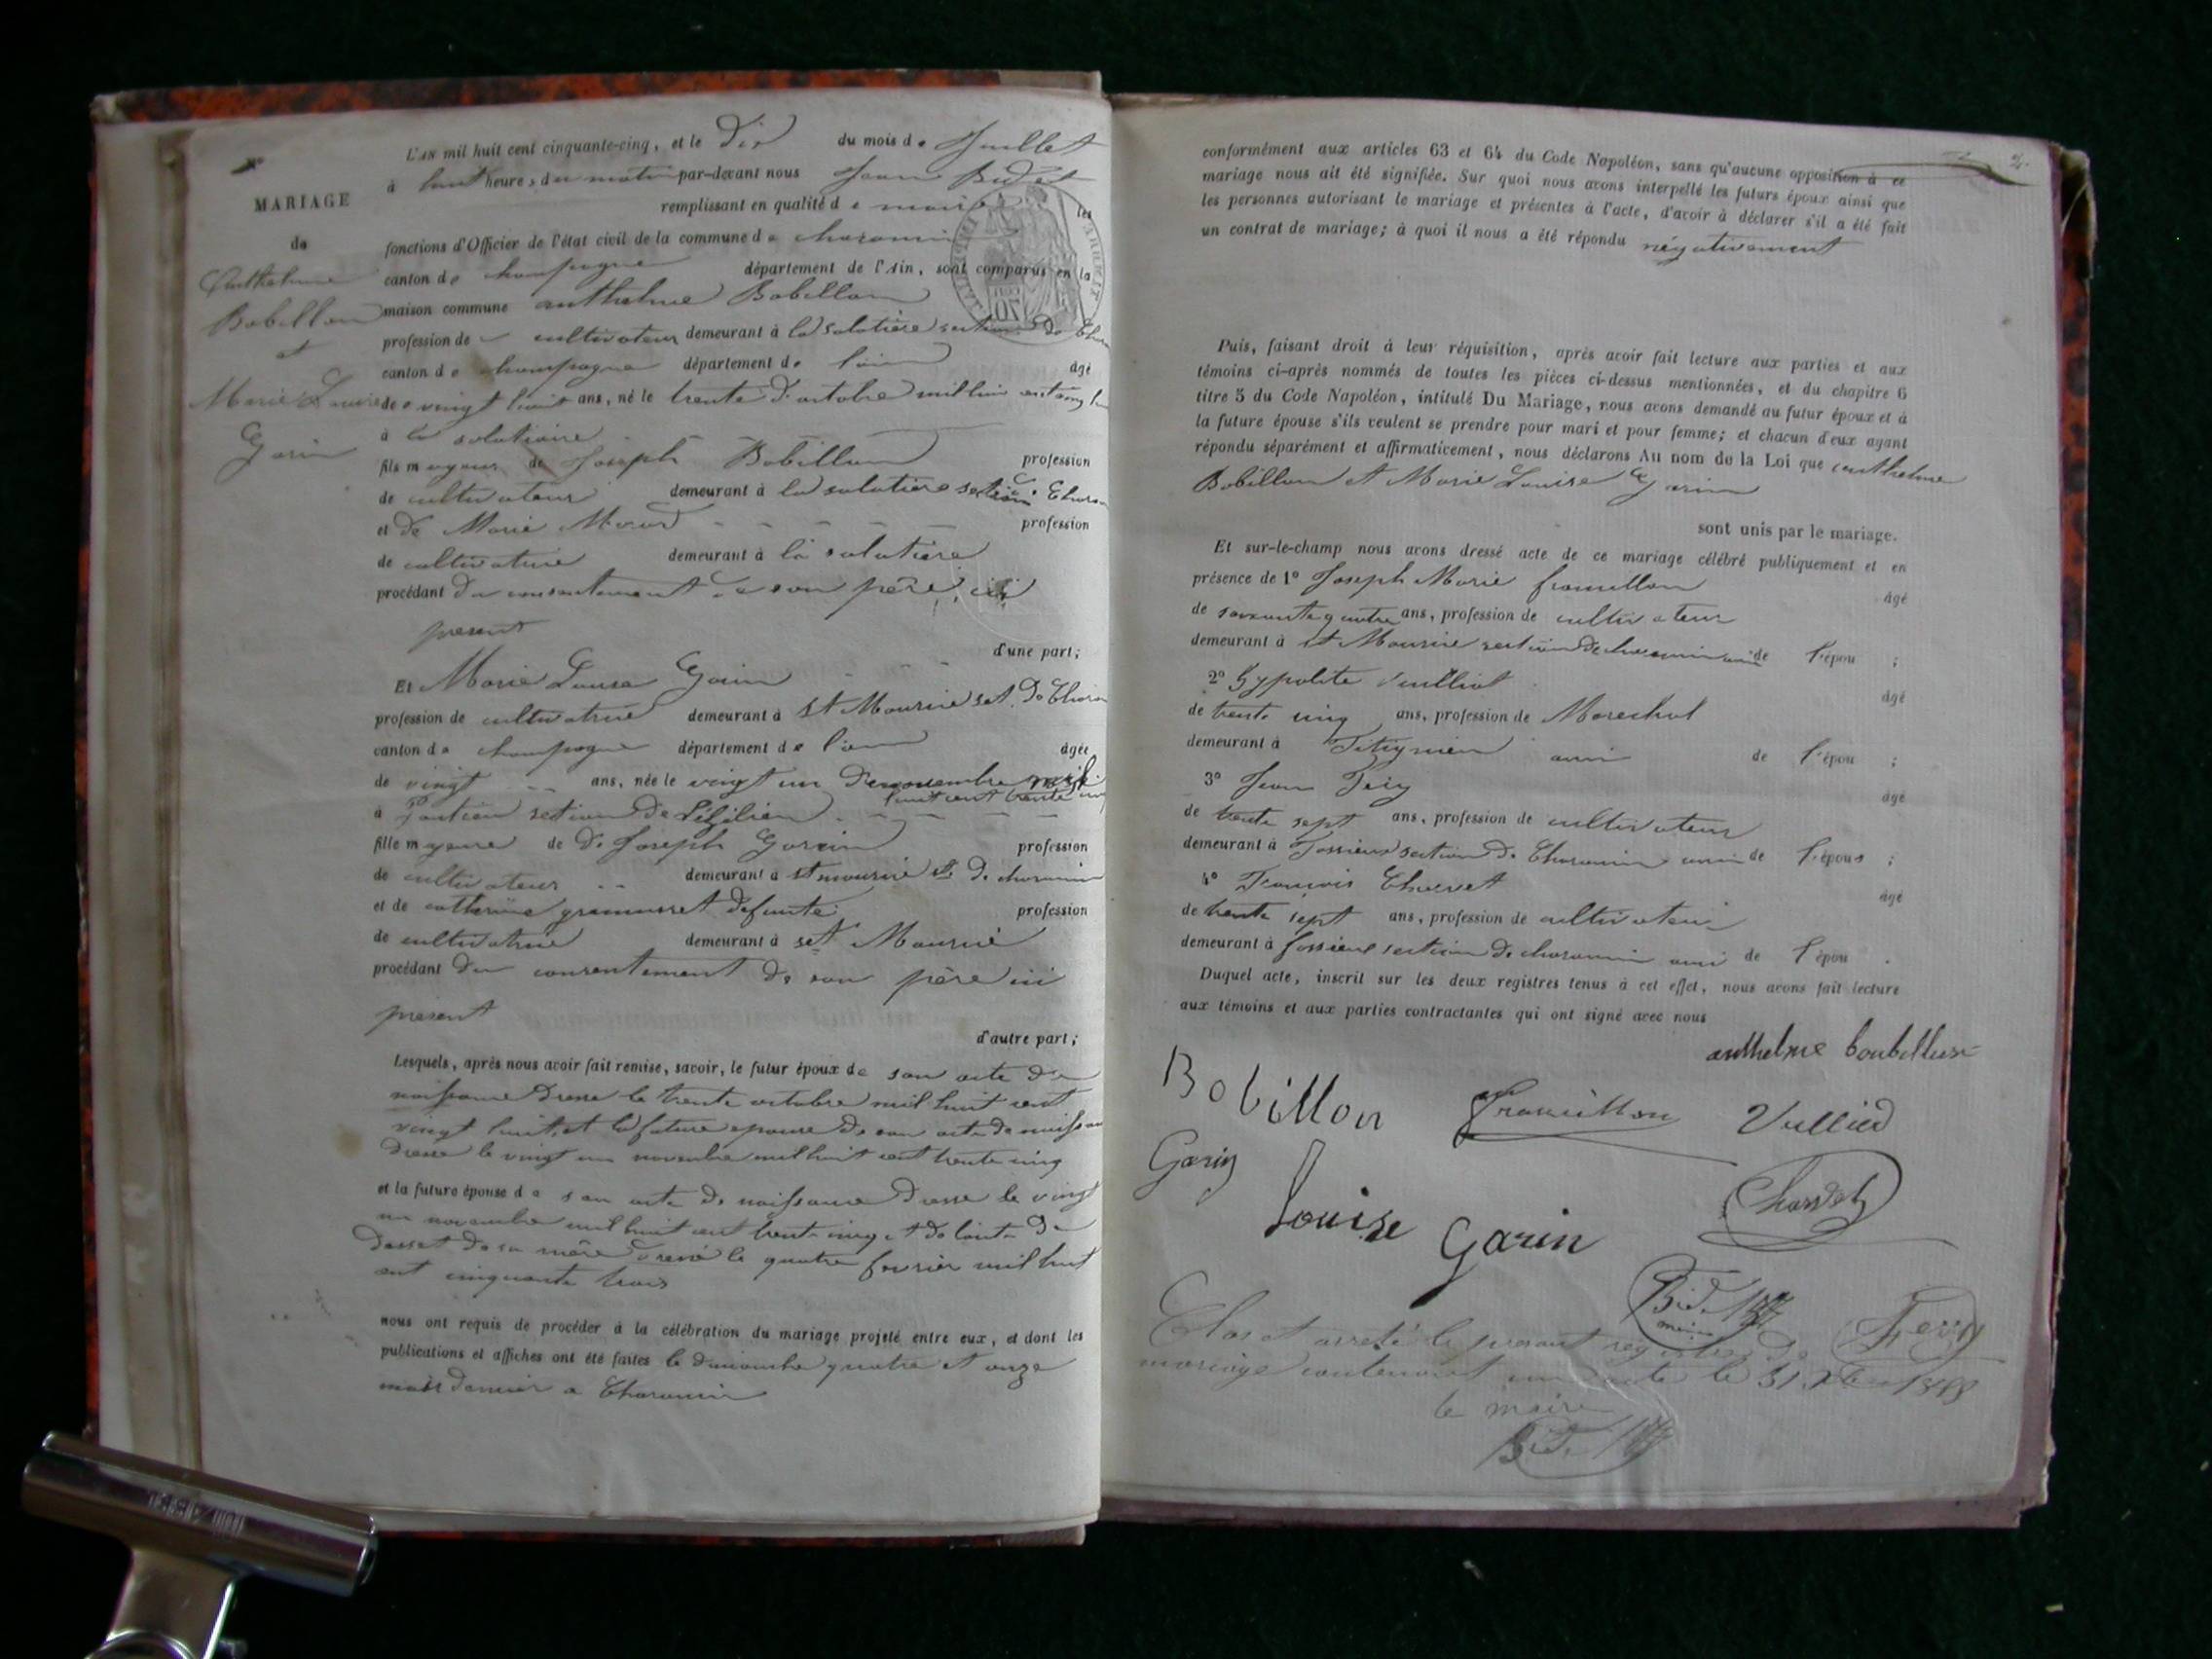 N°
MARIAGE
de
Anthelme
Bobillon
et
Marie Louise
Garin
L'AN mil huit cent cinquante-cinq, et le Dix du mois de Juillet
à huit heures du matin par-devant nous Jean Bidet
remplissant en qualité de maire les
fonctions d'Officier de l'état civil de la commune de charancin
canton de champagne département de l'Ain, sont comparus en la
maison commune anthelme Bobillon
profession de cultivateur demeurant à la salatière section de Char
canton de champagne département de l'ain âgé
de vingt huit ans, né le trente d'octobre mil huit cent vingt
à la
fils mageur de Joseph Bobillon profession
de cultivateur demeurant à la salatière section Charan
et de Marie profession
de cultivatrice demeurant à la salatière
procédant du consentement de son père, ici
present
d'une part;
Et Marie Louise Garin
profession de cultivatrice demeurant à St Mauricie set. de Charan
canton de champagne département de l'ain âgée
de vingt ans, née le vingt un de novembre mil
huit cent trente cinq
à section de
fille mageure de D. Joseph Garin profession
de cultivateur demeurant à st mauricie de charancin
et de catherine grammaret defunte profession
de cultivatrice demeurant à set Mauricie
procédant du consentement de son père ici
present
d'autre part;
Lesquels, après nous avoir fait remise, savoir, le futur époux de son acte de
naissance Dresse le trente octobre mil huit cent
vingt huit, et la future epouse de son acte de naissan
Dresse le vingt un novembre mil huit cent trente cinq
et la future épouse de son acte de naissance Dresse le vingt
un novembre mil huit cent trente cinq et de l'acte de
de sa mère le quatre fevrier mil huit
cent cinquante trois
nous ont requis de procéder à la célébration du mariage projeté entre eux, et dont les
publications et affiches ont été faites le dimanche quatre et onze
mars dernier a Charancin
conformément aux articles 63 et 64 du Code Napoléon, sans qu'aucune opposition à ce
mariage nous ait été signifiée. Sur quoi nous avons interpellé les futurs époux ainsi que
les personnes autorisant le mariage et présentes à l'acte, d'avoir à déclarer s'il a été fait
un contrat de mariage; à quoi il nous a été répondu négativement
Puis, faisant droit à leur réquisition, après avoir fait lecture aux parties et aux
témoins ci-après nommés de toutes les pièces ci-dessus mentionnées, et du chapitre 6
titre 5 du Code Napoléon, intitulé Du Mariage, nous avons demandé au futur époux et à
la future épouse s'ils veulent se prendre pour mari et pour femme; et chacun d'eux ayant
répondu séparément et affirmativement, nous déclarons Au nom de la Loi que anthelme
Bobillon et Marie Louise Garin
sont unis par le mariage.
Et sur-le-champ nous avons dressé acte de ce mariage célébré publiquement et en
présence de 1° Joseph Marie framillon âgé
de soixante quatre ans, profession de cultivateur
demeurant à st Mauricie section de charancin ami de l'épou ;
2° Hypolite Vuilliot âgé
de trente cinq ans, profession de Marechal
demeurant à ami de l'épou ;
3° Jean âgé
de trente sept ans, profession de cultivateur
demeurant à Fossieux section de Charancin ami de l'épous ;
4° François Charvet âgé
de trente sept ans, profession de cultivateur
demeurant à fossieux section de charancin ami de l'épou .
Duquel acte, inscrit sur les deux registres tenus à cet effet, nous avons fait lecture
aux témoins et aux parties contractantes qui ont signé avec nous
anthelme boubillion
Bobillon framillon Vullied
Garin Louise Garin Charvet
Bidet
maire
Clos et arreté le present registre de
mariage contenant un acte le 31 Xbre 1855
le maire
Bidet